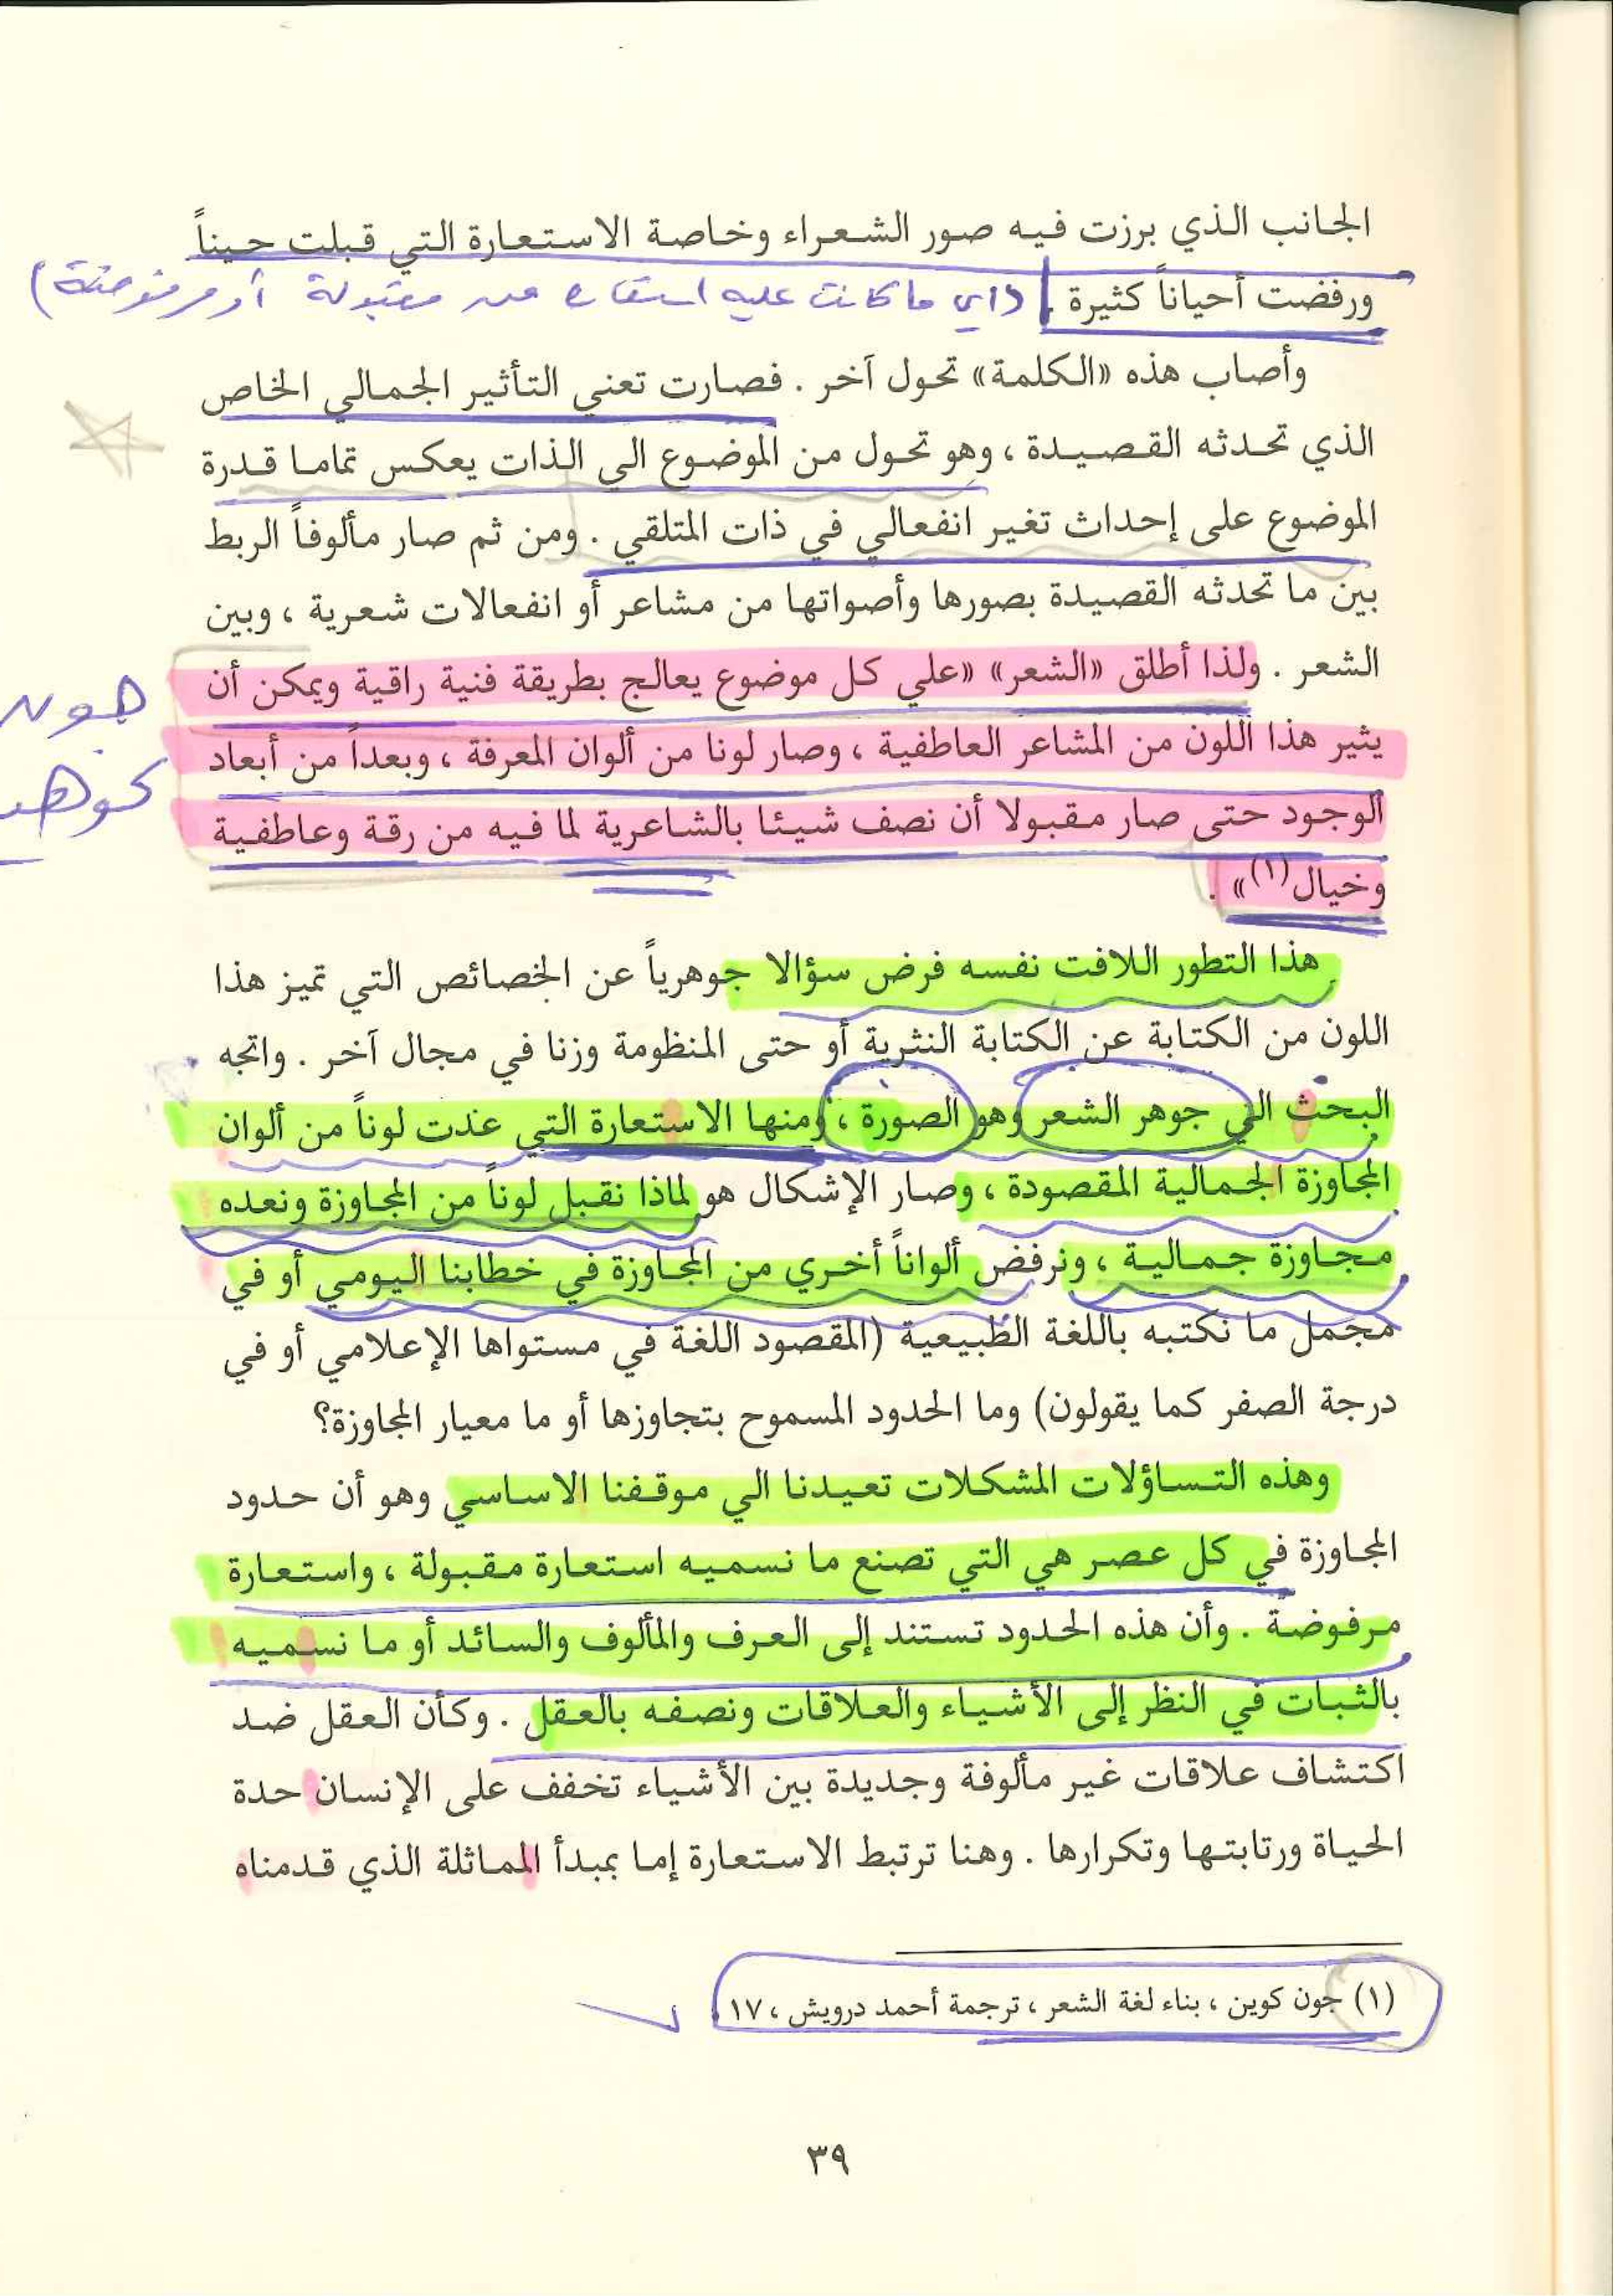 الجانب الذي برزت فيه صور الشعراء وخاصة الاستعارة التي قبلت حيناً
ورفضت أحياناً كثيرة . (اي ما كانت عليه استعارة من مقبولة أو مرفوضة)
وأصاب هذه «الكلمة» تحول آخر . فصارت تعني التأثير الجمالي الخاص
الذي تحدثه القصيدة ، وهو تحول من الموضوع الي الذات يعكس تماما قدرة
الموضوع على إحداث تغير انفعالي في ذات المتلقي . ومن ثم صار مألوفاً الربط
بين ما تحدثه القصيدة بصورها وأصواتها من مشاعر أو انفعالات شعرية ، وبين
الشعر . ولذا أطلق «الشعر» «علي كل موضوع يعالج بطريقة فنية راقية ويمكن أن
يثير هذا اللون من المشاعر العاطفية ، وصار لونا من ألوان المعرفة ، وبعداً من أبعاد
الوجود حتى صار مقبولا أن نصف شيئا بالشاعرية لما فيه من رقة وعاطفية
وخيال(١)» .
جون
كوهن
هذا التطور اللافت نفسه فرض سؤالا جوهرياً عن الخصائص التي تميز هذا
اللون من الكتابة عن الكتابة النثرية أو حتى المنظومة وزنا في مجال آخر . واتجه
البحث الي جوهر الشعر وهو الصورة ، ومنها الاستعارة التي عدت لوناً من ألوان
المجاوزة الجمالية المقصودة ، وصار الإشكال هو لماذا نقبل لوناً من المجاوزة ونعده
مجاوزة جمالية ، ونرفض ألواناً أخري من المجاوزة في خطابنا اليومي أو في
مجمل ما نكتبه باللغة الطبيعية (المقصود اللغة في مستواها الإعلامي أو في
درجة الصفر كما يقولون) وما الحدود المسموح بتجاوزها أو ما معيار المجاوزة؟
وهذه التساؤلات المشكلات تعيدنا الي موقفنا الاساسي وهو أن حدود
المجاوزة في كل عصر هي التي تصنع ما نسميه استعارة مقبولة ، واستعارة
مرفوضة . وأن هذه الحدود تستند إلى العرف والمألوف والسائد أو ما نسميه
بالثبات في النظر إلى الأشياء والعلاقات ونصفه بالعقل . وكأن العقل ضد
اكتشاف علاقات غير مألوفة وجديدة بين الأشياء تخفف على الإنسان حدة
الحياة ورتابتها وتكرارها . وهنا ترتبط الاستعارة إما بمبدأ المماثلة الذي قدمناه
(١) جون كوين ، بناء لغة الشعر ، ترجمة أحمد درويش ، ١٧ .
٣٩